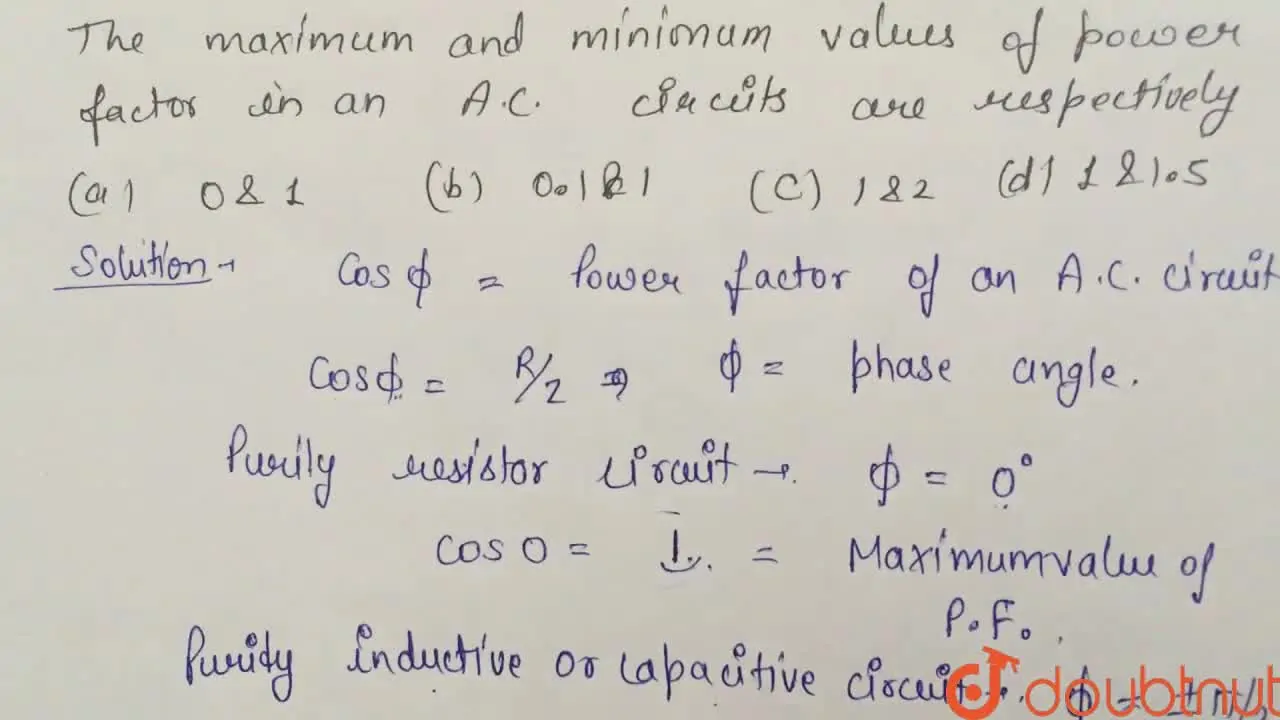 The maximum and minimum values of power
factor in an A.C. circuits are respectively
(a) 0 & 1 (b) 0.1 & 1 (C) 1 & 2 (d) 1 & 1.5
Solution→ Cos ϕ = Power factor of an A.C. circuit
Cosϕ = R/Z ⇒ ϕ = phase angle.
Purily resistor circuit → ϕ = 0°
cos 0 = 1 = Maximum value of
P.F.
Purity inductive or capacitive circuit → ϕ = ± π/
doubtnut